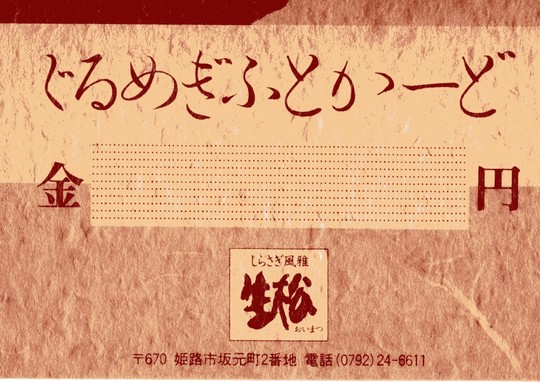 ぐるめぎふとかーど
金 円
しらさぎ風雅
生松
おいまつ
〒670 姫路市坂元町2番地 電話(0792)24-6611